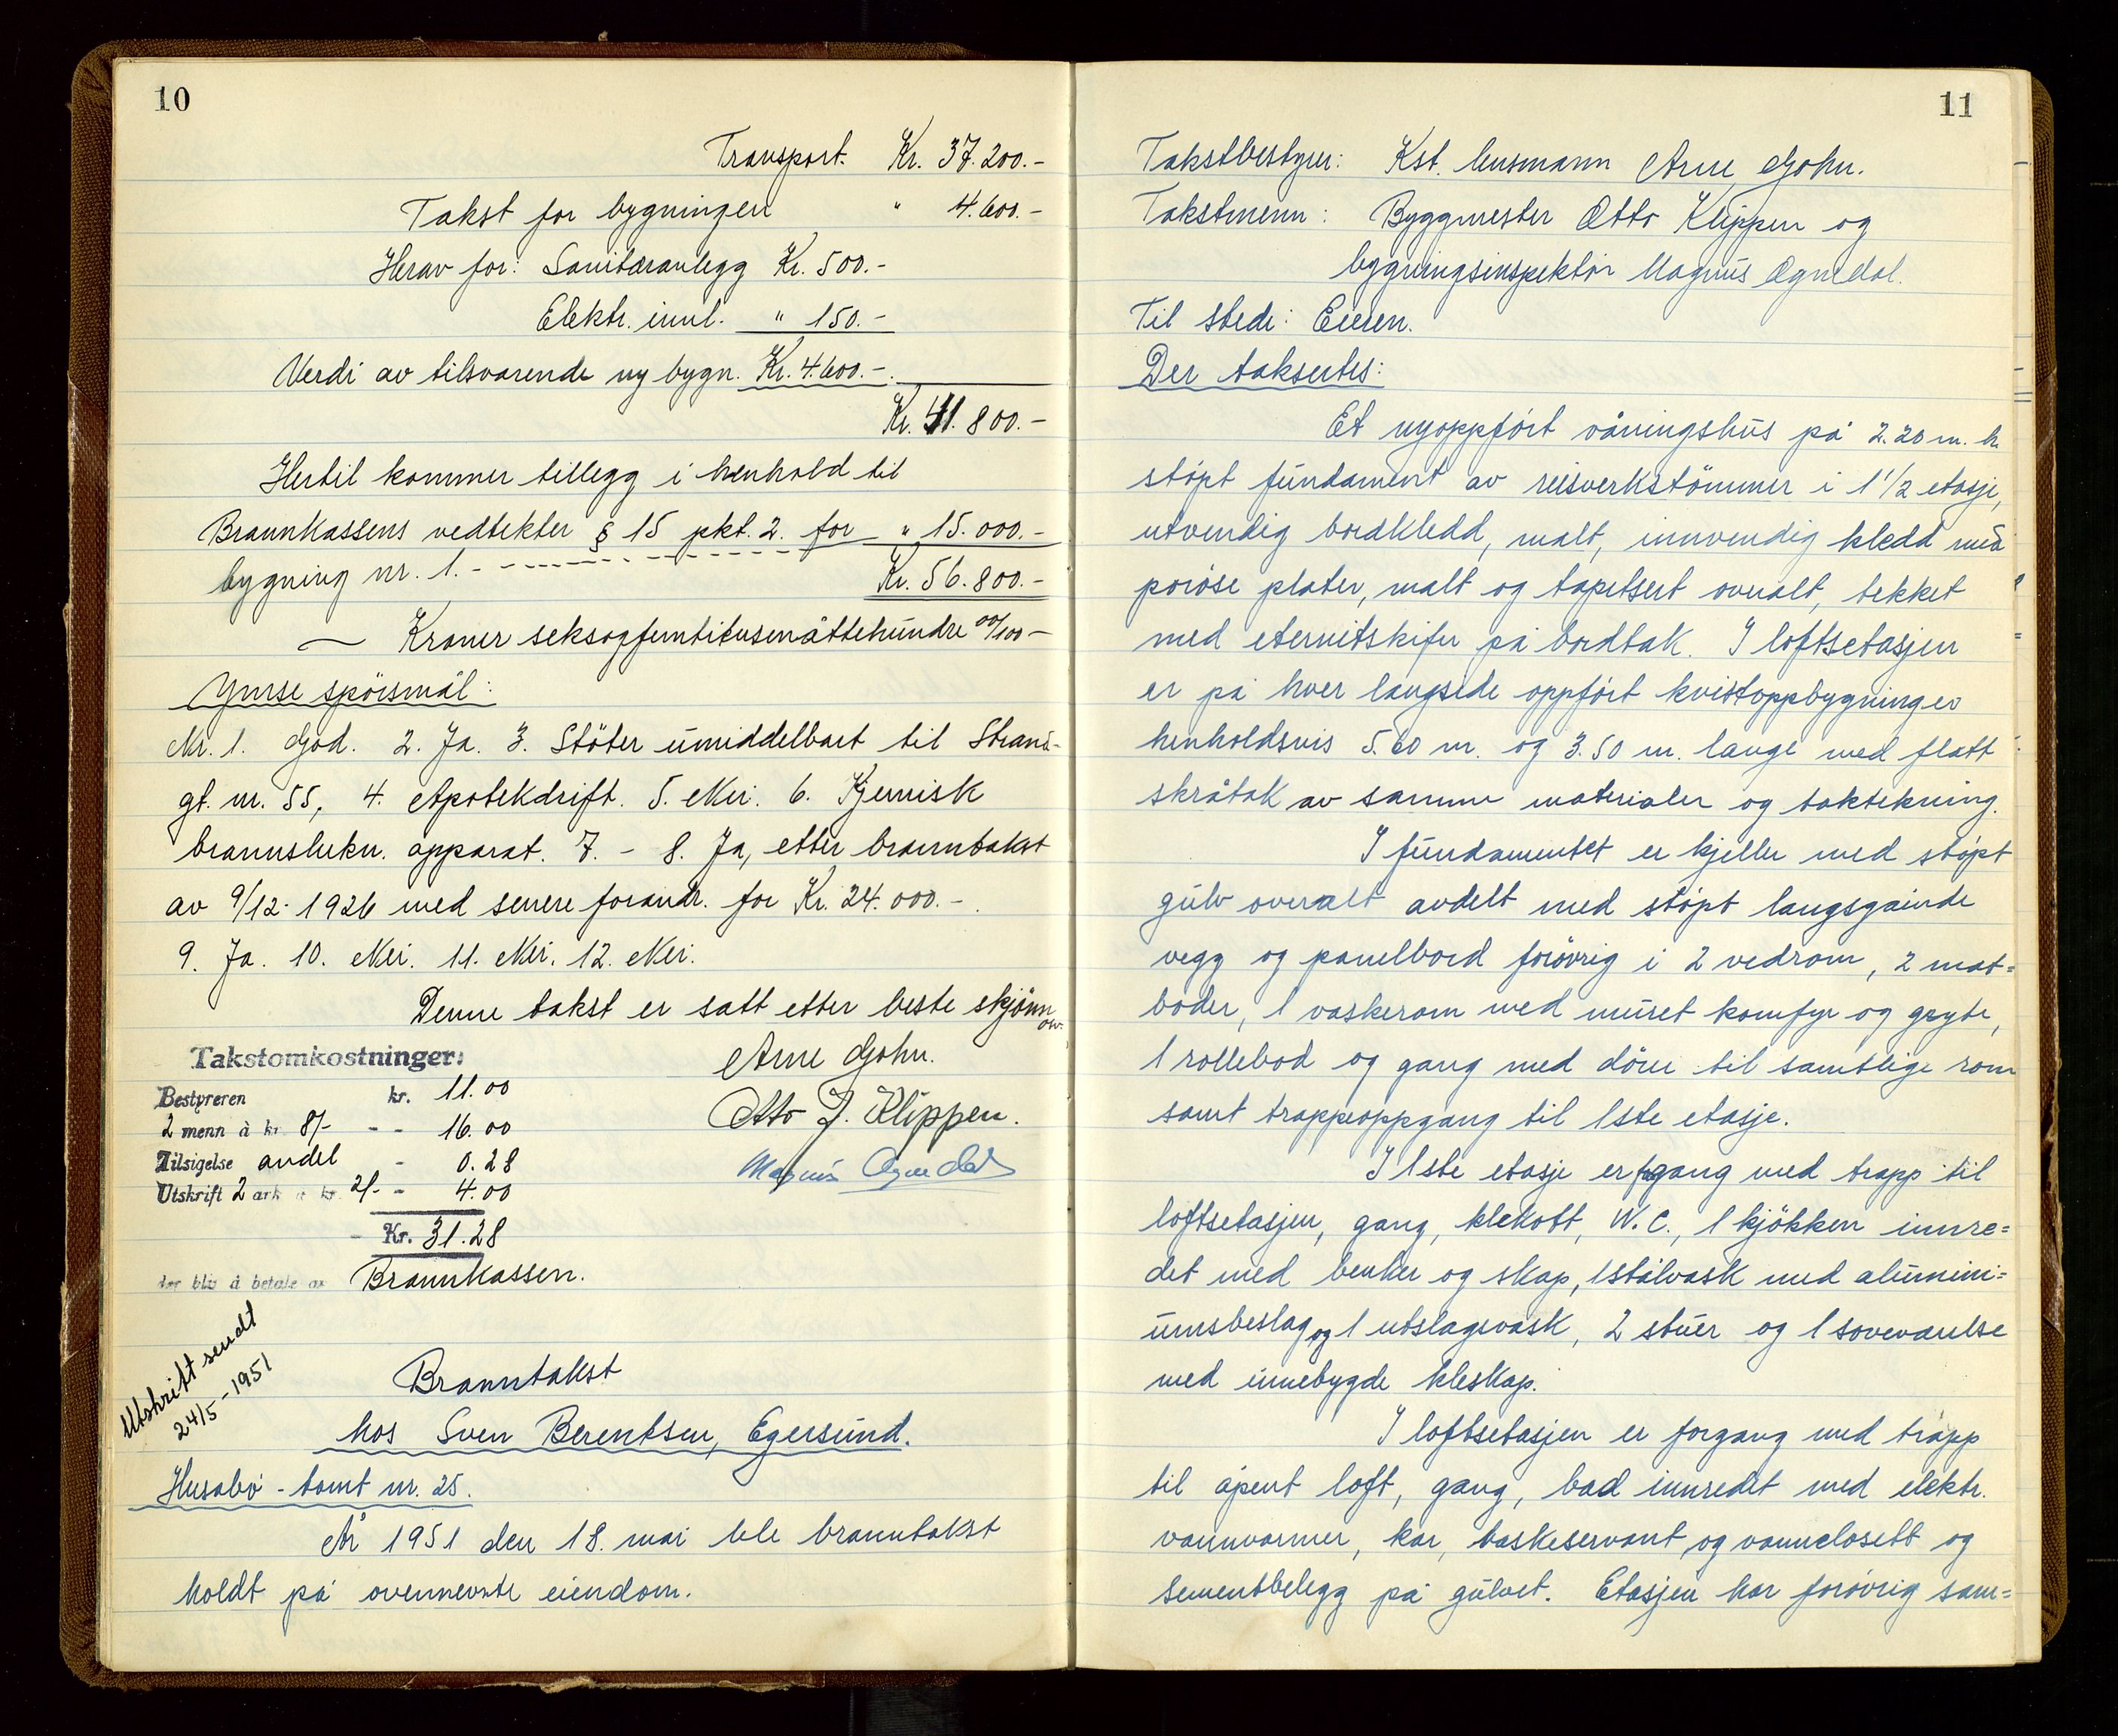 10
Transport. Kr. 37.200.-
Takst for bygningen " 4.600.-
Herav for: Sanitæranlegg Kr. 500.-
Elektr. innl. " 150.-
Verdi av tilsvarende ny bygn. Kr. 4.600.-
Kr. 41.800.-
Hertil kommer tillegg i henhold til
Brannkassens vedtekter § 15 pkt. 2. for " 15.000.-
bygning nr. 1. - Kr. 56.800.-
Kroner seksogfemtitusenåttehundre 00/100 -
Ymse spörsmål:
Nr. 1. God. 2. Ja. 3. Stöter umiddelbart til Strand-
gt. nr. 55, 4. Apotekdrift. 5. Nei. 6. Kjemisk
brannslukn. apparat. 7. - 8. Ja, etter branntakst
av 9/12-1926 med senere forandr. for Kr. 24.000.-
9. Ja. 10. Nei. 11. Nei. 12. Nei.
Denne takst er satt etter beste skjönn
ow.
Arne Gohn.
Otto J. Klippen.
Magnus Ognedal
Takstomkostninger:
Bestyreren kr. 11.00
2 menn à kr. 8/- - - 16.00
Tilsigelse andel - 0.28
Utskrift 2 ark à kr. 2/- - 4.00
Kr. 31.28
der blir å betale av Brannkassen.
Utskrift sendt
24/5-1951
Branntakst
hos Sven Berentsen, Egersund.
Husabö - tomt nr. 25.
År 1951 den 18. mai ble branntakst
holdt på ovennevnte eiendom.
11
Takstbestyrer: Kst. lensmann Arne Gohn.
Takstmenn: Byggmester Otto Klippen og
bygningsinspektör Magnus Ognedal.
Til stede: Eieren.
Der taksertes:
Et nyoppfört våningshus på 2.20 m. h.
stöpt fundament av reisverkstömmer i 1 1/2 etasje,
utvendig bordkledd, malt, innvendig kledd med
poröse plater, malt og tapetsert overalt, tekket
med eternitskifer på bordtak. I loftsetasjen
er på hver langside oppfört kvistoppbygninger
henholdsvis 5.60 m. og 3.50 m. lange med flatt
skråtak av samme materialer og taktekning.
I fundamentet er kjeller med stöpt
gulv overalt avdelt med stöpt langsgående
vegg og panelbord forövrig i 2 vedrom, 2 mat=
boder, 1 vaskerom med muret komfyr og gryte,
1 rollebod og gang med dörer til samtlige rom
samt trappeoppgang til 1ste etasje.
I 1ste etasje er gang med trapp til
loftsetasjen, gang, klekott, W.C., 1 kjökken innre=
det med benker og skap, 1 stålvask med alumini=
umsbeslag og 1 utslagsvask, 2 stuer og 1 soveværelse
med innebygde kleskap.
I loftsetasjen er forgang med trapp
til åpent loft, gang, bad innredet med elektr.
vannvarmer, kar, vaskeservant og vannclosett og
sementbelegg på gulvet. Etasjen har forövrig sam=